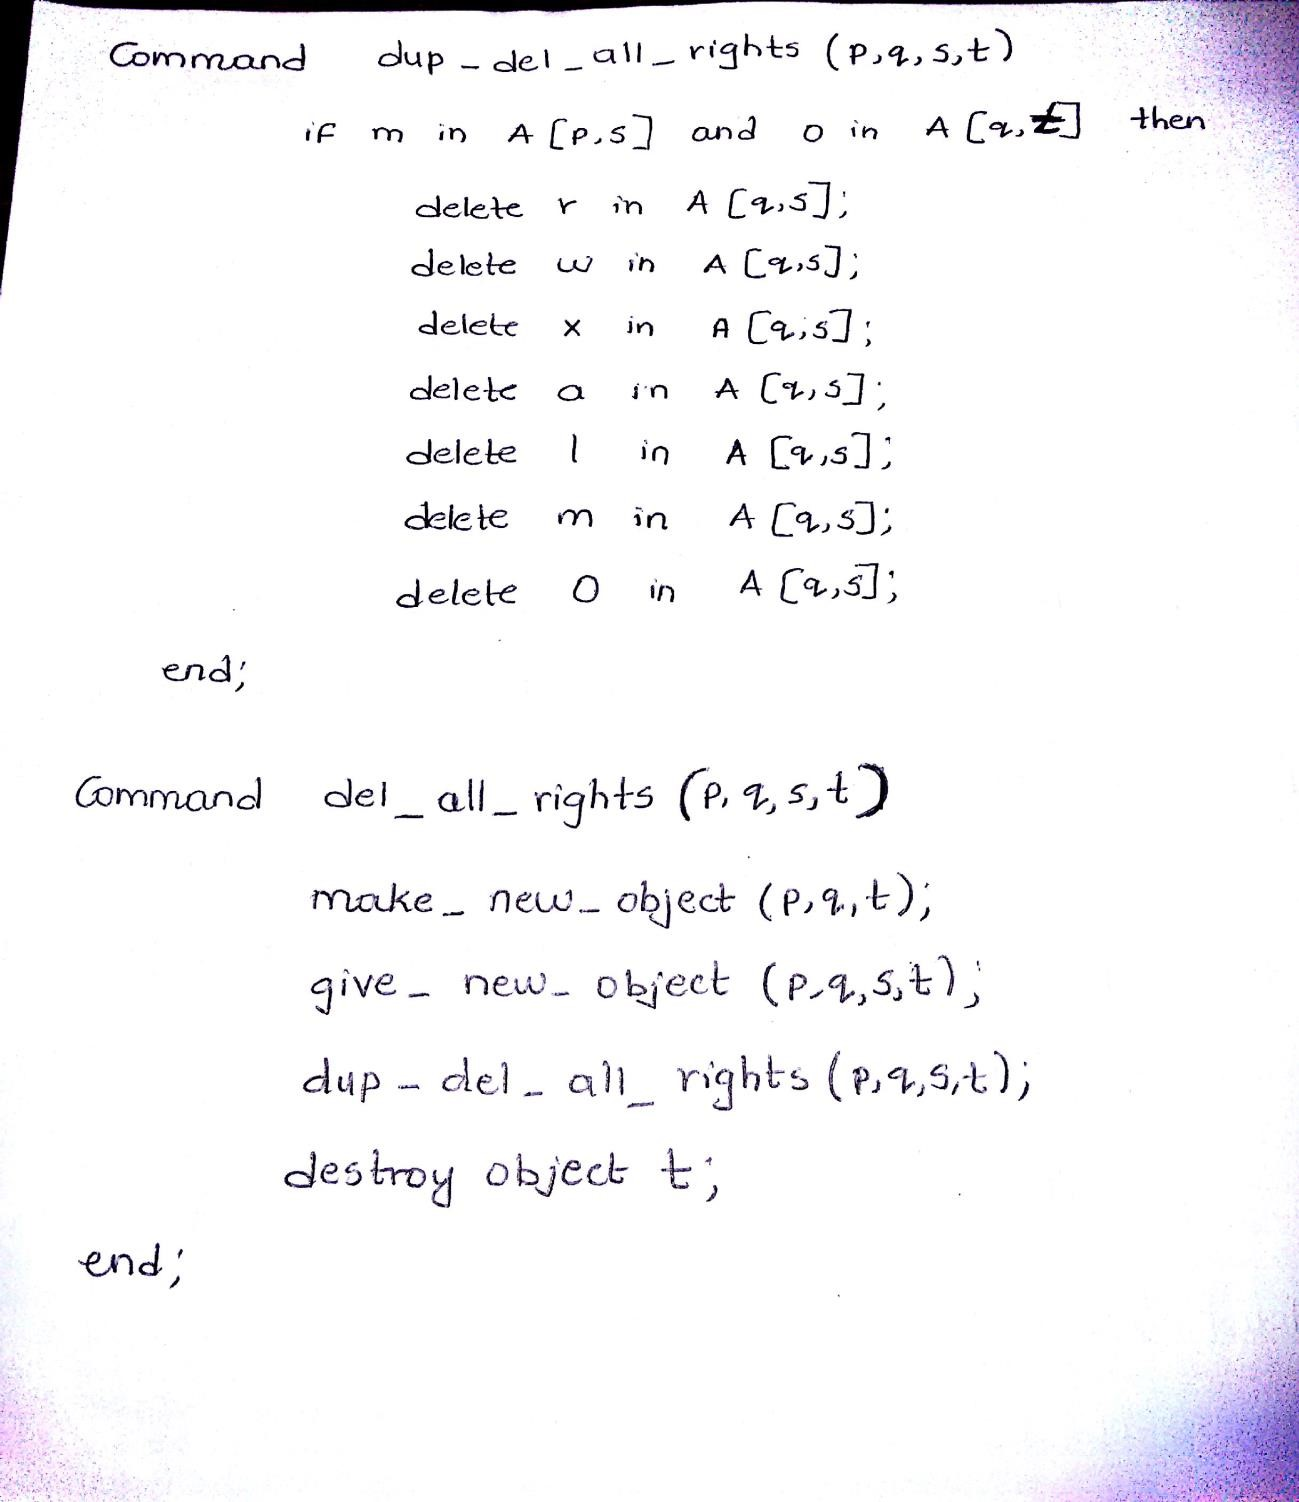 Command dup_del_all_rights (p,q,s,t)
if m in A[p,s] and o in A[q,t] then
delete r in A[q,s];
delete w in A[q,s];
delete x in A[q,s];
delete a in A[q,s];
delete l in A[q,s];
delete m in A[q,s];
delete O in A[q,s];
end;
Command del_all_rights (p,q,s,t)
make_new_object (p,q,t);
give_new_object (p,q,s,t);
dup_del_all_rights (p,q,s,t);
destroy object t;
end;